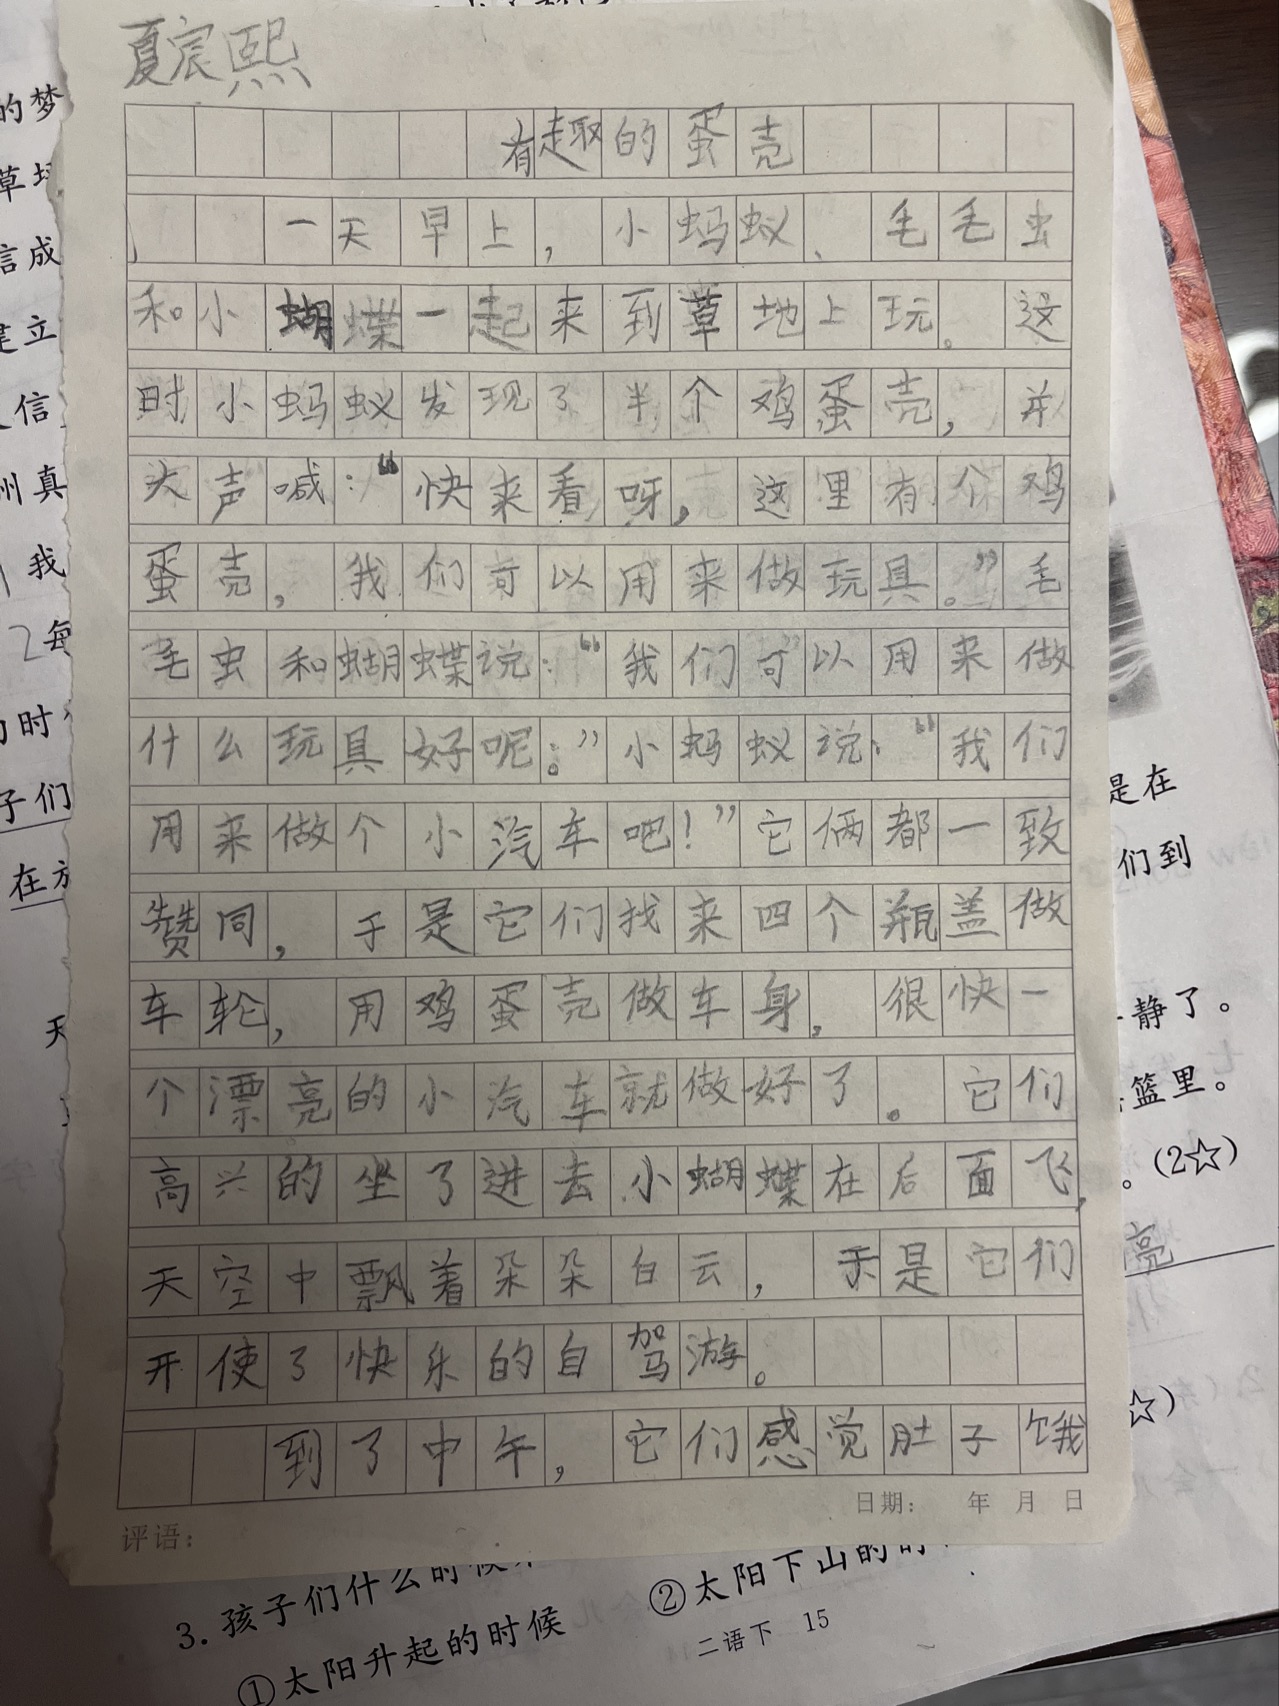 夏宸熙
有趣的蛋壳
一天早上，小蚂蚁、毛毛虫
和小蝴蝶一起来到草地上玩。这
时小蚂蚁发现了半个鸡蛋壳，并
大声喊：“快来看呀，这里有个鸡
蛋壳，我们可以用来做玩具。”毛
毛虫和蝴蝶说：“我们可以用来做
什么玩具好呢？”小蚂蚁说：“我们
用来做个小汽车吧！”它俩都一致
赞同，于是它们找来四个瓶盖做
车轮，用鸡蛋壳做车身，很快一
个漂亮的小汽车就做好了。它们
高兴的坐了进去小蝴蝶在后面飞，
天空中飘着朵朵白云，于是它们
开使了快乐的自驾游。
到了中午，它们感觉肚子饿
日期： 年 月 日
评语：
的梦
草
信成
建立
信
州真
我
2每
时
子们
在
是在
们到
静了。
篮里。
。(2☆)
亮
☆)
3. 孩子们什么时候
①太阳升起的时候
②太阳下山的时
二语下 15